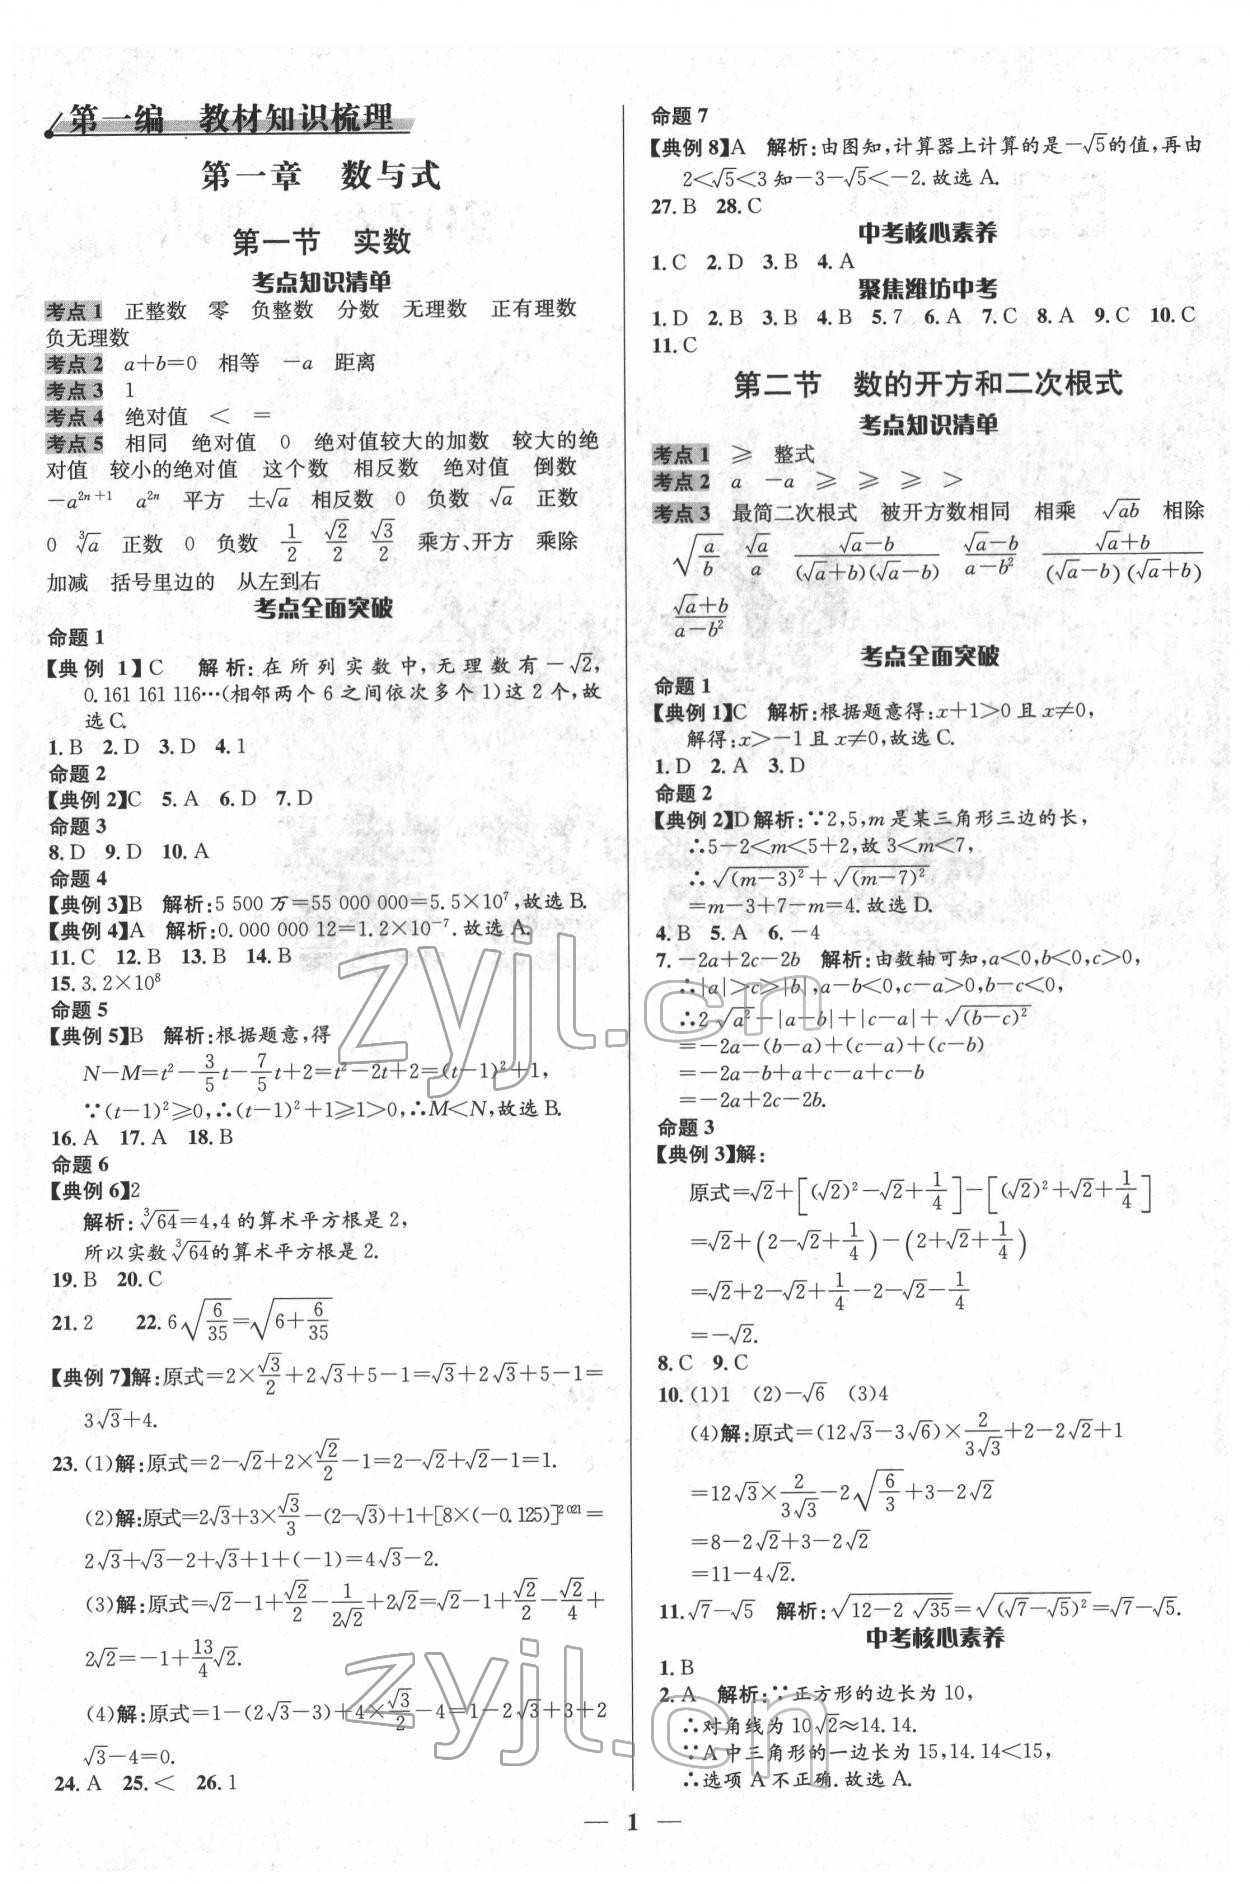 第一编 教材知识梳理
第一章 数与式
第一节 实数
考点知识清单
考点1 正整数 零 负整数 分数 无理数 正有理数
负无理数
考点2 a+b=0 相等 －a 距离
考点3 1
考点4 绝对值 ＜ ＝
考点5 相同 绝对值 0 绝对值较大的加数 较大的绝
对值 较小的绝对值 这个数 相反数 绝对值 倒数
－a²ⁿ⁺¹ a²ⁿ 平方 ±√a 相反数 0 负数 √a 正数
0 ∛a 正数 0 负数 1/2 √2/2 √3/2 乘方、开方 乘除
加减 括号里边的 从左到右
考点全面突破
命题1
【典例1】C 解析:在所列实数中,无理数有－√2,
0.161 161 116…(相邻两个6之间依次多个1)这2个,故
选C.
1.B 2.D 3.D 4.1
命题2
【典例2】C 5.A 6.D 7.D
命题3
8.D 9.D 10.A
命题4
【典例3】B 解析:5 500万=55 000 000=5.5×10⁷,故选B.
【典例4】A 解析:0.000 000 12=1.2×10⁻⁷.故选A.
11.C 12.B 13.B 14.B
15.3.2×10⁸
命题5
【典例5】B 解析:根据题意,得
N－M=t²－3/5t－7/5t+2=t²－2t+2=(t－1)²+1,
∵(t－1)²≥0,∴(t－1)²+1≥1>0,∴M<N,故选B.
16.A 17.A 18.B
命题6
【典例6】2
解析:∛64=4,4的算术平方根是2,
所以实数∛64的算术平方根是2.
19.B 20.C
21.2 22.6√(6/35)=√(6+6/35)
【典例7】解:原式=2×√3/2+2√3+5－1=√3+2√3+5－1=
3√3+4.
23.(1)解:原式=2－√2+2×√2/2－1=2－√2+√2－1=1.
(2)解:原式=2√3+3×√3/3－(2－√3)+1+[8×(－0.125)]²⁰²¹=
2√3+√3－2+√3+1+(－1)=4√3－2.
(3)解:原式=√2－1+√2/2－1/(2√2)+2√2=√2－1+√2/2－√2/4+
2√2=－1+13/4√2.
(4)解:原式=1－(2√3－3)+4×√3/2－4=1－2√3+3+2
√3－4=0.
24.A 25.＜ 26.1
命题7
【典例8】A 解析:由图知,计算器上计算的是－√5的值,再由
2<√5<3知－3－√5<－2.故选A.
27.B 28.C
中考核心素养
1.C 2.D 3.B 4.A
聚焦潍坊中考
1.D 2.B 3.B 4.B 5.7 6.A 7.C 8.A 9.C 10.C
11.C
第二节 数的开方和二次根式
考点知识清单
考点1 ≥ 整式
考点2 a －a ≥ ≥ ≥ ＞
考点3 最简二次根式 被开方数相同 相乘 √ab 相除
√(a/b) √a/a (√a－b)/((√a+b)(√a－b)) (√a－b)/(a－b²) (√a+b)/((√a－b)(√a+b))
(√a+b)/(a－b²)
考点全面突破
命题1
【典例1】C 解析:根据题意得:x+1>0且x≠0,
解得:x>－1且x≠0,故选C.
1.D 2.A 3.D
命题2
【典例2】D解析:∵2,5,m是某三角形三边的长,
∴5－2<m<5+2,故3<m<7,
∴√(m－3)²+√(m－7)²
=m－3+7－m=4.故选D.
4.B 5.A 6.－4
7.－2a+2c－2b 解析:由数轴可知,a<0,b<0,c>0,
∴|a|>c>|b|,a－b<0,c－a>0,b－c<0,
∴2√a²－|a－b|+|c－a|+√(b－c)²
=－2a－(b－a)+(c－a)+(c－b)
=－2a－b+a+c－a+c－b
=－2a+2c－2b.
命题3
【典例3】解:
原式=√2+[(√2)²－√2+1/4]－[(√2)²+√2+1/4]
=√2+(2－√2+1/4)－(2+√2+1/4)
=√2+2－√2+1/4－2－√2－1/4
=－√2.
8.C 9.C
10.(1)1 (2)－√6 (3)4
(4)解:原式=(12√3－3√6)×2/(3√3)+2－2√2+1
=12√3×2/(3√3)－2√(6/3)+3－2√2
=8－2√2+3－2√2
=11－4√2.
11.√7－√5 解析:√(12－2√35)=√(√7－√5)²=√7－√5.
中考核心素养
1.B
2.A 解析:∵正方形的边长为10,
∴对角线为10√2≈14.14.
∵A中三角形的一边长为15,14.14<15,
∴选项A不正确.故选A.
— 1 —
zyjl.cn
zyjl.cn